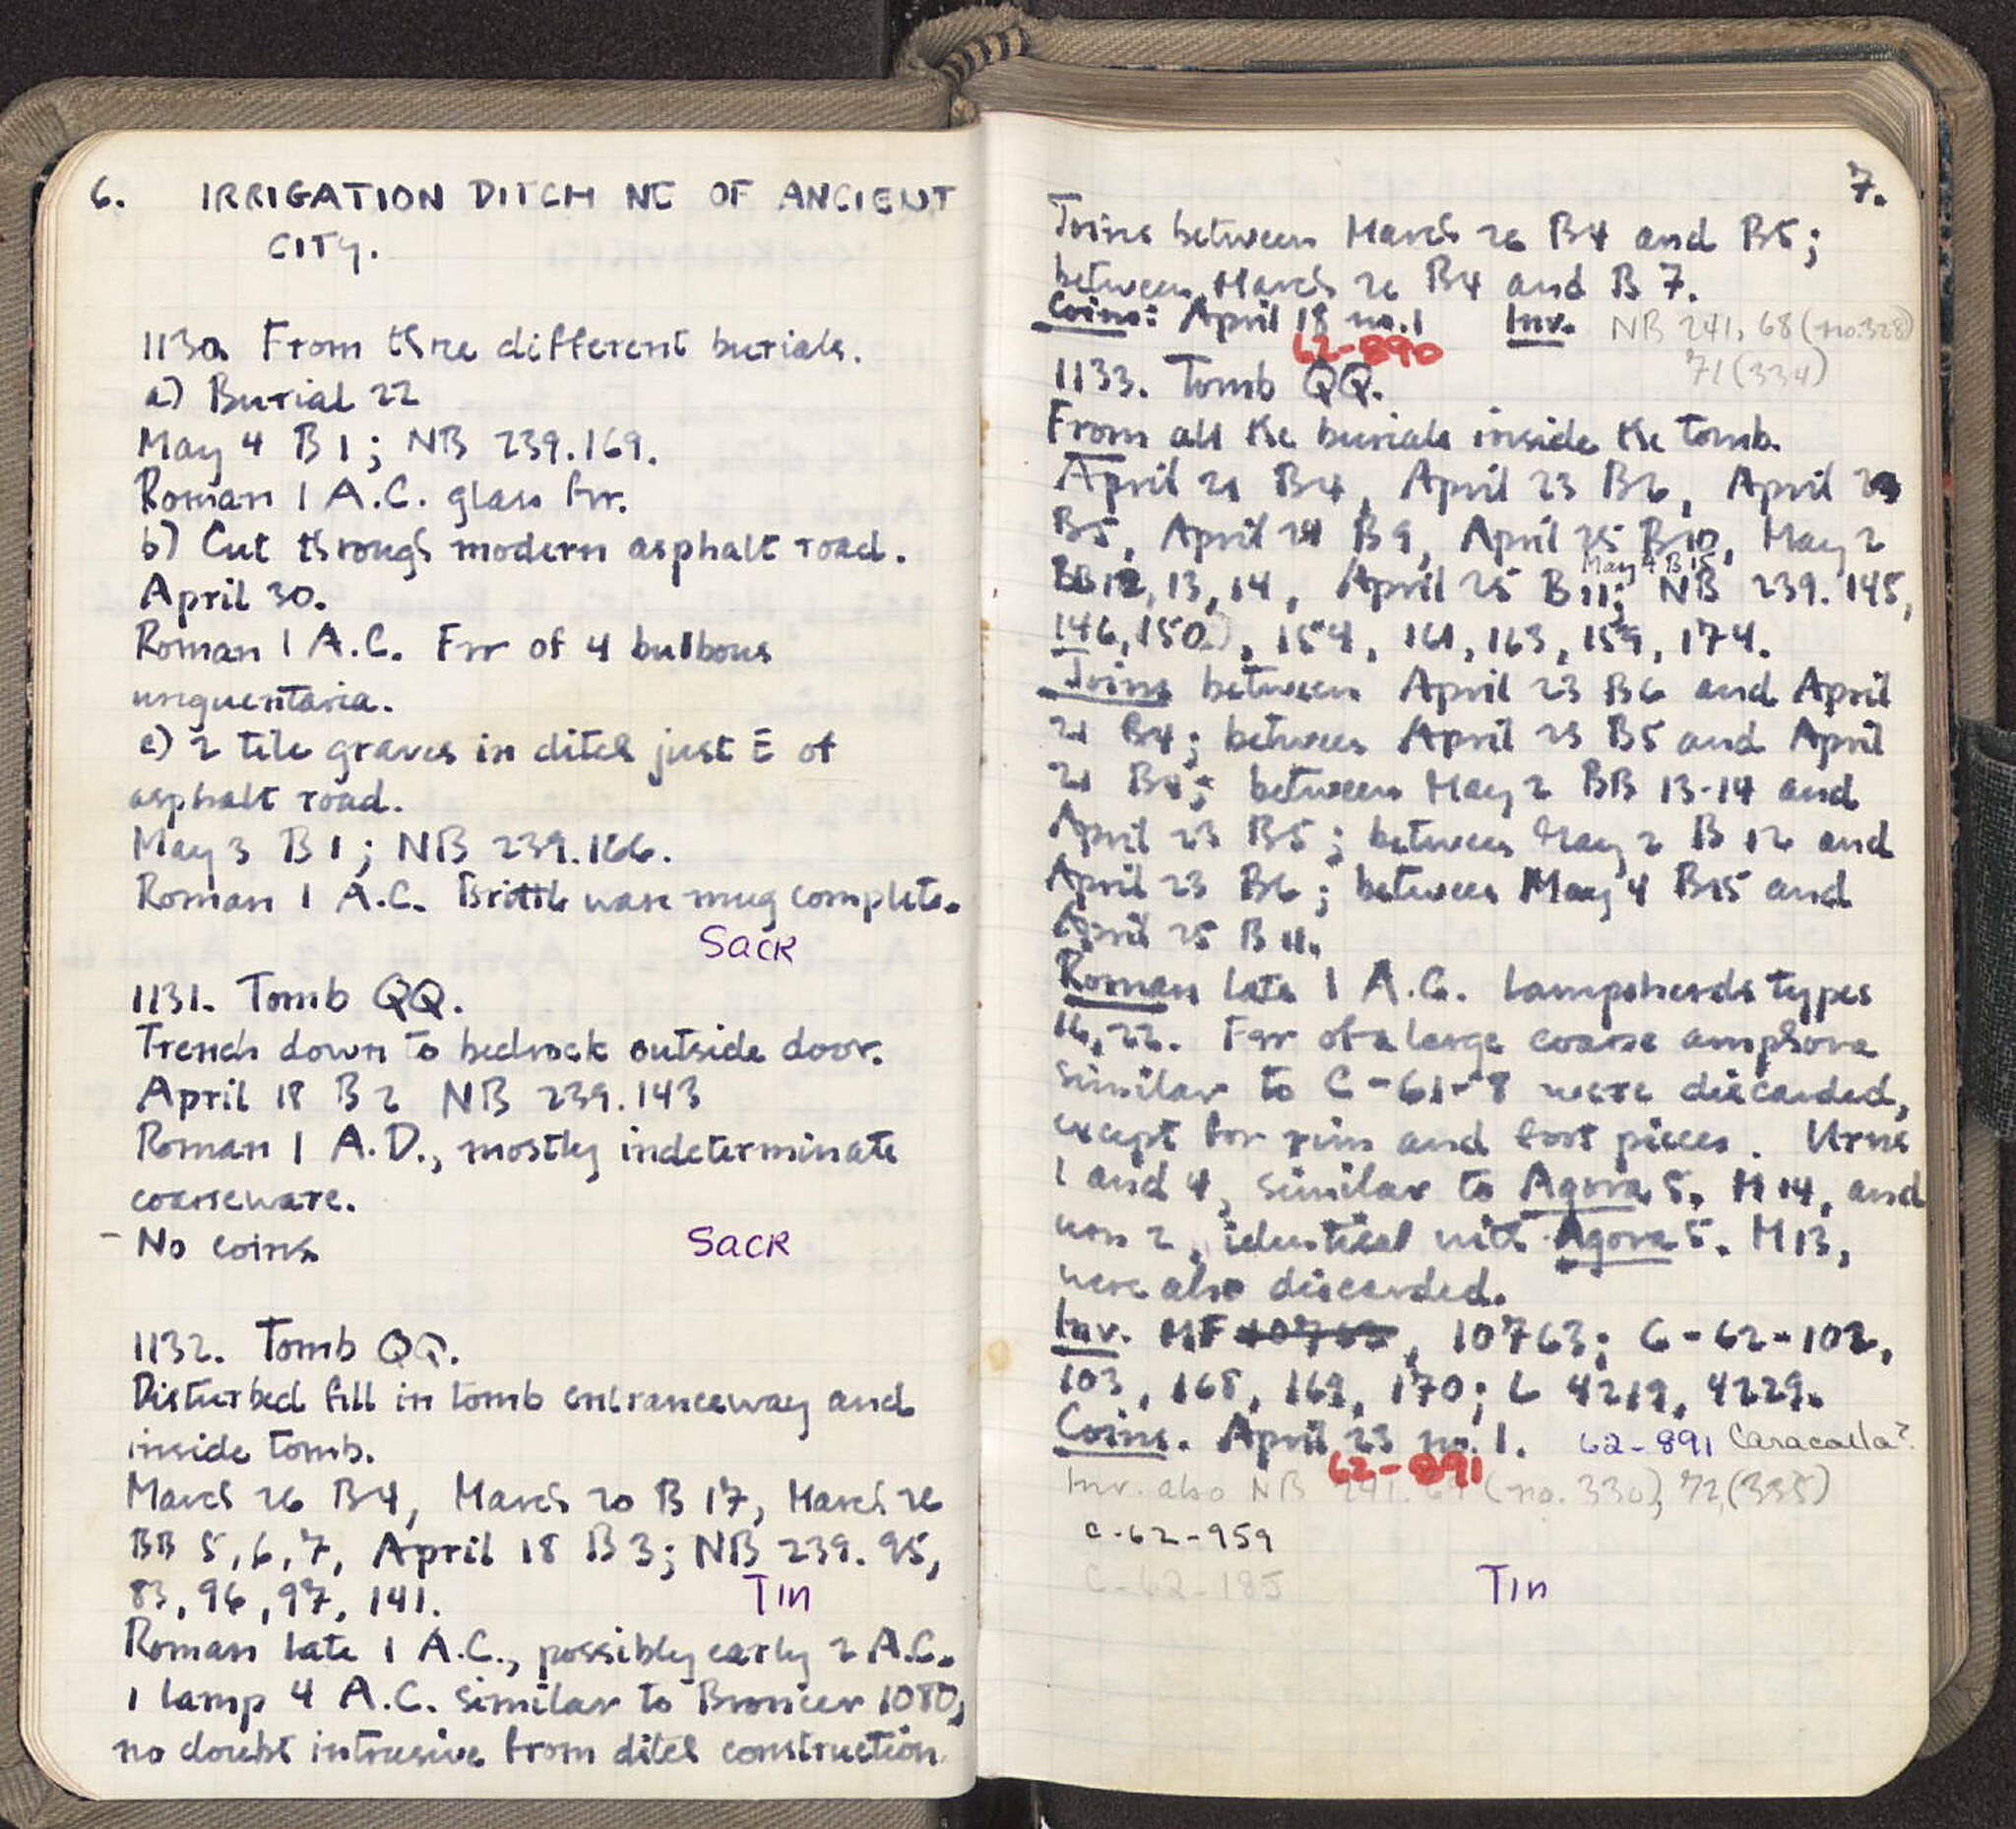 6. IRRIGATION DITCH NE OF ANCIENT
CITY.
1130. From three different burials.
a) Burial 22
May 4 B 1; NB 239.169.
Roman 1 A.C. glass frr.
b) Cut through modern asphalt road.
April 30.
Roman 1 A.C. Frr of 4 bulbous
unguentaria.
c) 2 tile graves in ditch just E of
asphalt road.
May 3 B 1; NB 239.166.
Roman 1 A.C. Brittle ware mug complete.
Sack
1131. Tomb QQ.
Trench down to bedrock outside door.
April 18 B 2 NB 239.143
Roman 1 A.D., mostly indeterminate
coarseware.
- No coins
Sack
1132. Tomb QQ.
Disturbed fill in tomb entranceway and
inside tomb.
March 26 B4, March 20 B 17, March 26
BB 5, 6, 7, April 18 B 3; NB 239. 95,
83, 96, 97, 141.
Tin
Roman late 1 A.C., possibly early 2 A.C.
1 lamp 4 A.C. similar to Broneer 1080,
no doubt intrusive from ditch construction.
7.
Joins between March 26 B4 and B5;
between March 26 B4 and B 7.
Coins: April 18 no. 1 Inv. NB 241, 68 (no. 328)
62-890 71 (334)
1133. Tomb QQ.
From all the burials inside the tomb.
April 21 B4, April 23 B6, April 23
B5, April 24 B 9, April 25 B10, May 2
May 4 B 15
BB12, 13, 14, April 25 B 11; NB 239. 145,
146, 150, 154, 161, 163, 159, 174.
Joins between April 23 B6 and April
21 B4; between April 23 B5 and April
21 B4; between May 2 BB 13-14 and
April 23 B5; between May 2 B 12 and
April 23 B6; between May 4 B15 and
April 25 B 11.
Roman late 1 A.C. Lampsherds types
16, 22. Frr of a large coarse amphora
similar to C-61-8 were discarded,
except for rim and foot pieces. Urns
1 and 4, similar to Agora 5. M 14, and
urn 2, identical with Agora 5. M13,
were also discarded.
Inv. MF 10763, 10763; C-62-102,
103, 168, 169, 170; L 4219, 4229.
Coins. April 23 no. 1. 62-891 Caracalla?
62-891
Inv. also NB 241. (no. 330), 72, (335)
C-62-959
C-62-185
Tin